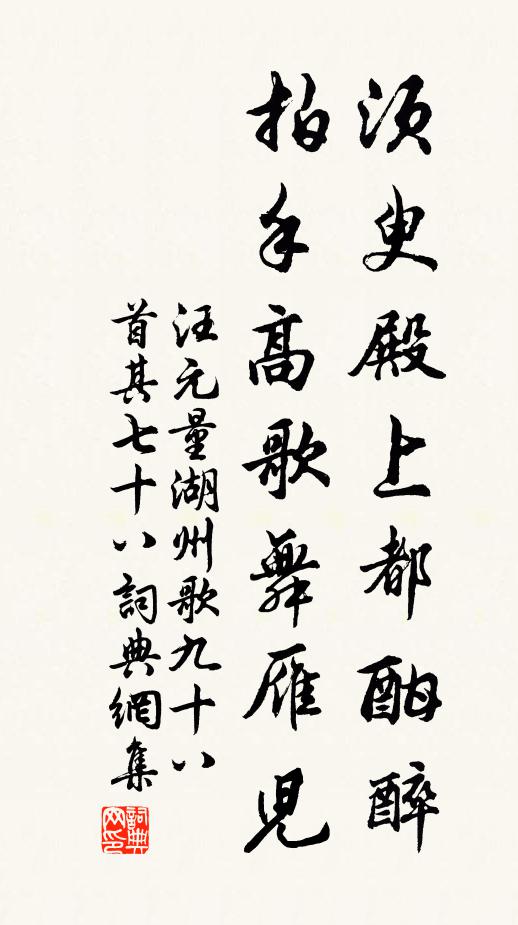 須臾殿上都酣醉
拍手高歌舞雁兒
汪元量湖州歌九十八
首其七十八詞典網集
詞典
网印